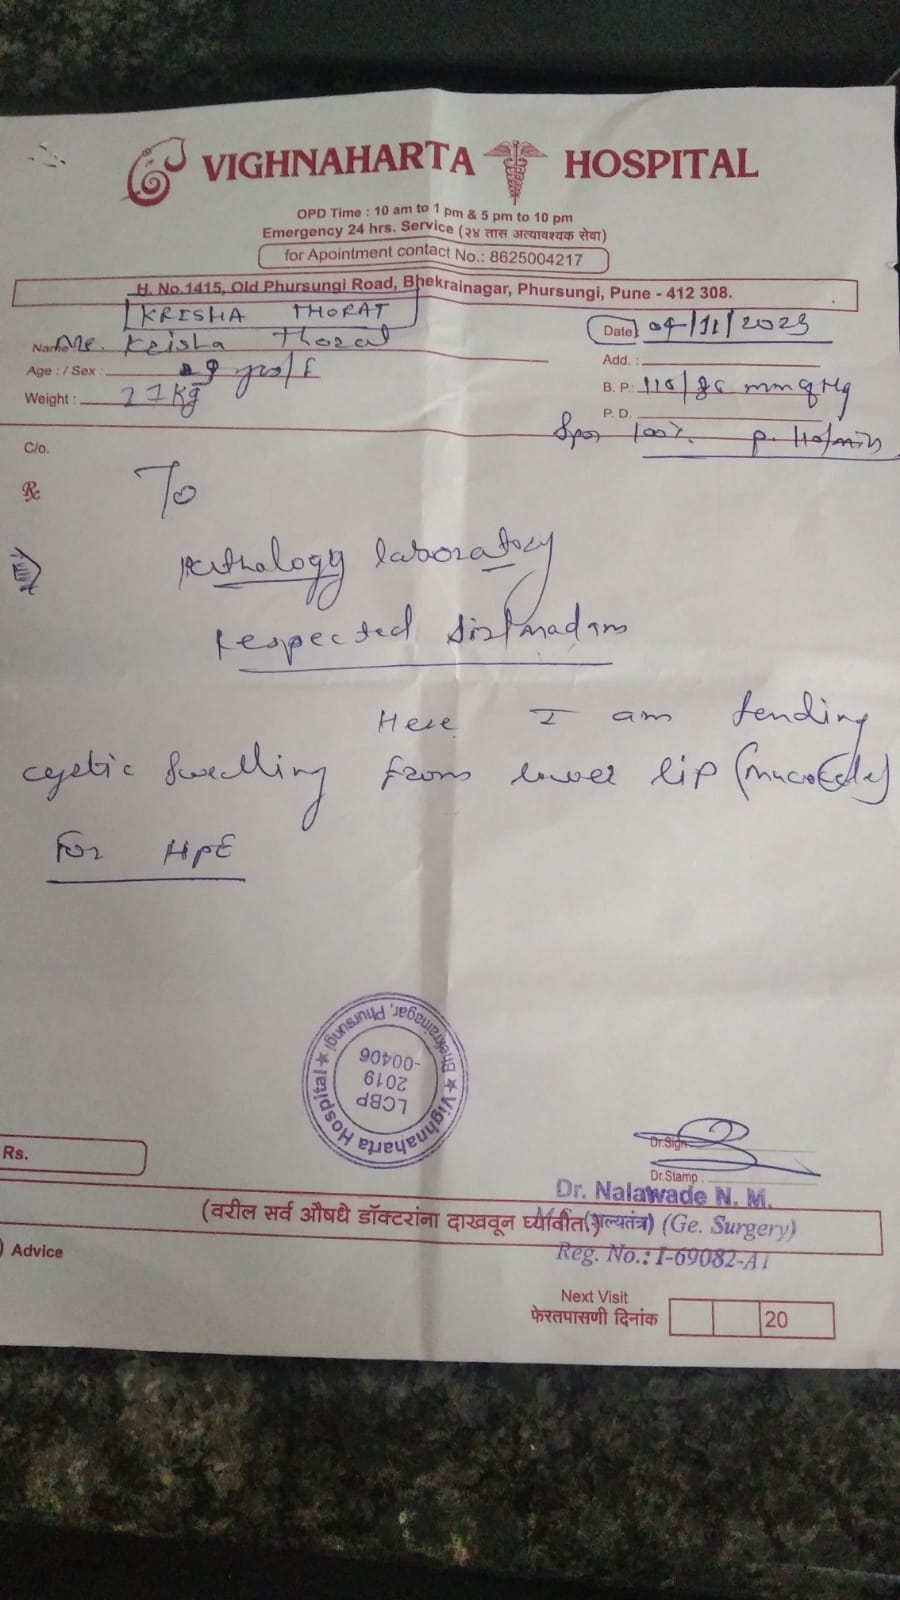 VIGHNAHARTA HOSPITAL
OPD Time : 10 am to 1 pm & 5 pm to 10 pm
Emergency 24 hrs. Service (२४ तास अत्यावश्यक सेवा)
for Apointment contact No.: 8625004217
H. No.1415, Old Phursungi Road, Bhekrainagar, Phursungi, Pune - 412 308.
KRISHA THORAT
Name Krisha Thorat
Date /11/2023
Age : / Sex : yrs/F
Add. :
Weight : 27kg
B. P.: mm of Hg
P. D.
100% p. 110/min
C/o.
Rx
To
pathology laboratory
Respected Sir/madam
Here I am sending
cystic swelling from lower lip (mucocele)
For HPE
Vighnaharta Hospital ★ Bhekrainagar, Phursungi ★
LCBP
2019
-00406
Rs.
Dr.Sign
Dr.Stamp
Dr. Nalawade N. M.
(वरील सर्व औषधे डॉक्टरांना दाखवून घ्यावीत)
(शल्यतंत्र) (Ge. Surgery)
Reg. No.: I-69082-A1
Advice
Next Visit
फेरतपासणी दिनांक 20